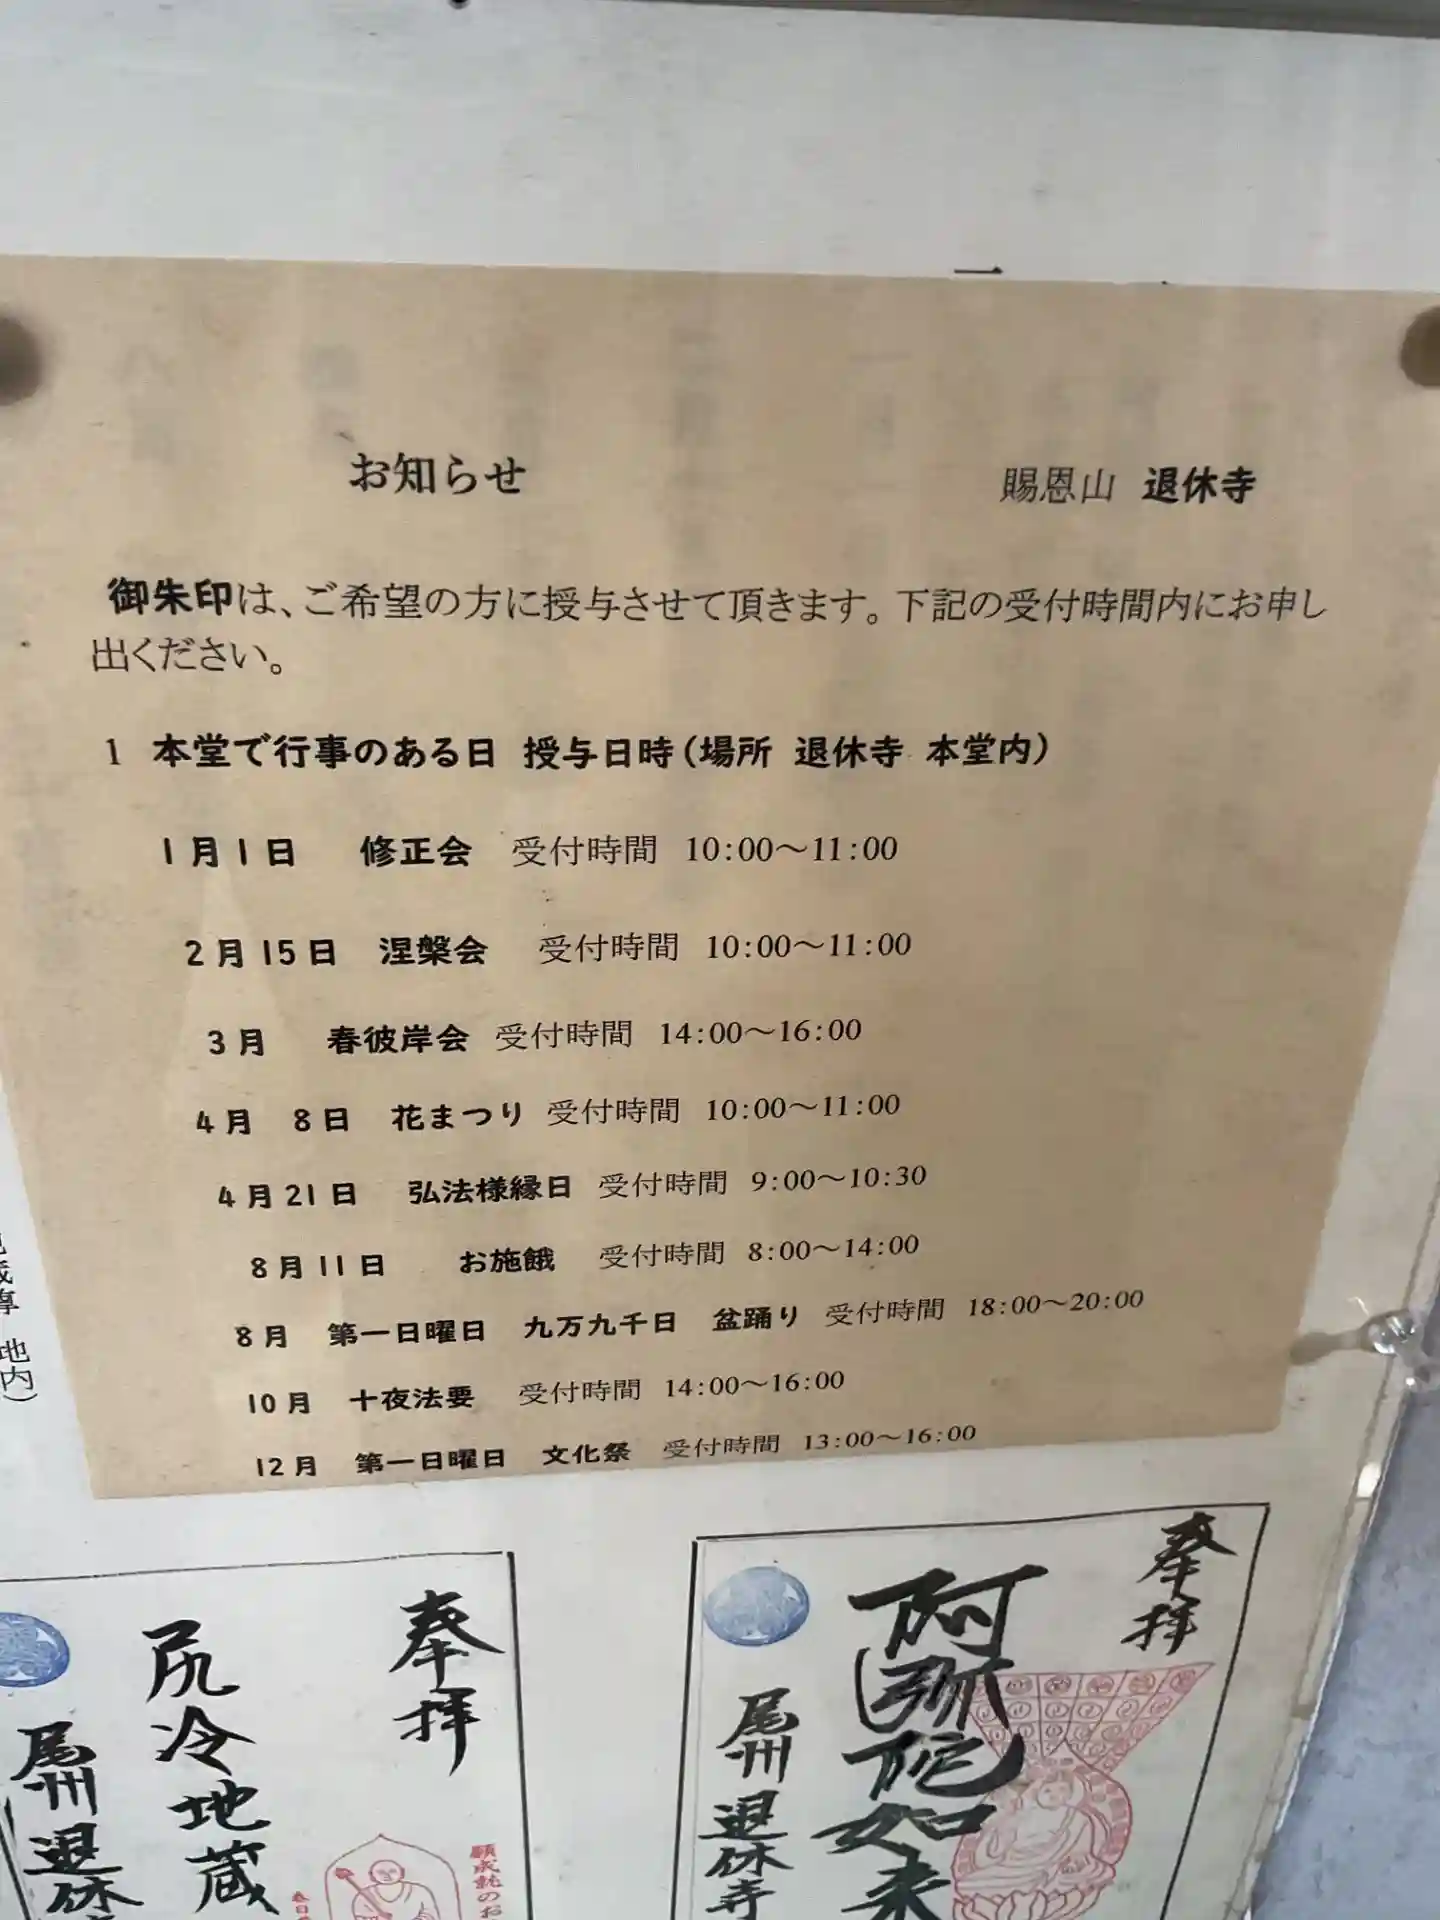 お知らせ　賜恩山　退休寺
御朱印は、ご希望の方に授与させて頂きます。下記の受付時間内にお申し
出ください。
1　本堂で行事のある日　授与日時(場所　退休寺　本堂内)
1月1日　修正会　受付時間　10:00～11:00
2月15日　涅槃会　受付時間　10:00～11:00
3月　春彼岸会　受付時間　14:00～16:00
4月　8日　花まつり　受付時間　10:00～11:00
4月21日　弘法様縁日　受付時間　9:00～10:30
8月11日　お施餓　受付時間　8:00～14:00
8月　第一日曜日　九万九千日　盆踊り　受付時間　18:00～20:00
10月　十夜法要　受付時間　14:00～16:00
12月　第一日曜日　文化祭　受付時間　13:00～16:00
奉拝
阿弥陀如来
尾州　退休寺
奉拝
尻冷地蔵
尾州　退休
願成就のお
地内)